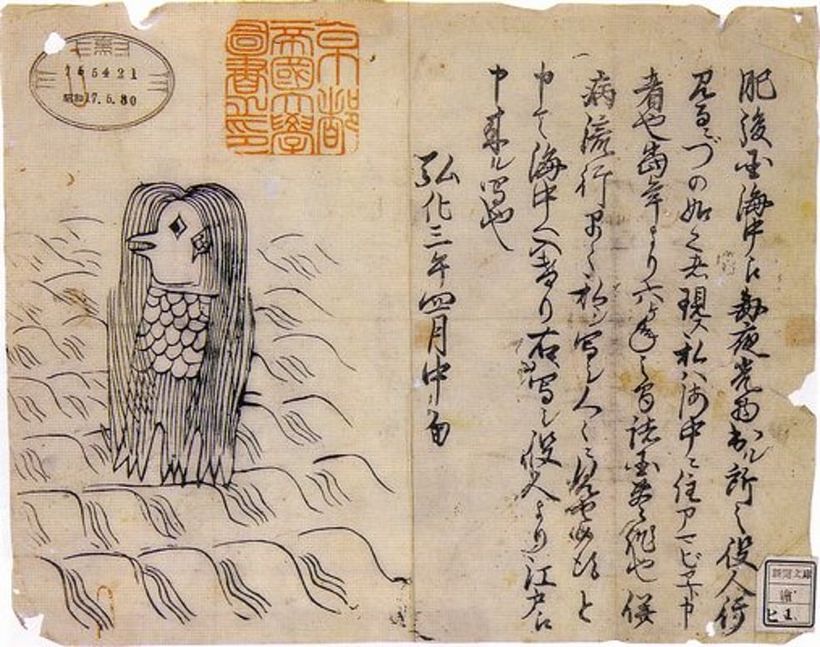 肥後国海中え毎夜光物出ル所之役人行
見るニづの如之者現ス私ハ海中ニ住アマビヱト申
者也当年より六ヶ年之間諸国豊作也併
病流行早々私シ写シ人々ニ見セ候得と
申て海中へ入けり右写シ役人より江戸え
申来ル写也
弘化三年四月中旬
京都
帝國大學
圖書之印
165421
昭和17.5.30
新聞文庫
繪
ヒ 1